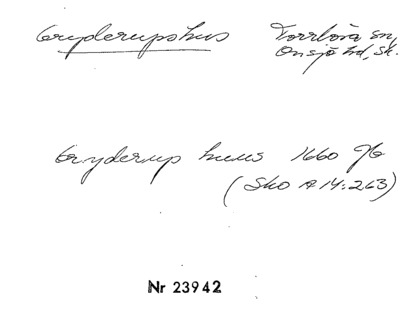 Gryderupshus Torrlösa sn,
Onsjö hd, Sk.
Gryderup huus 1660 Jb
(Skå A 14:263)
Nr 23942